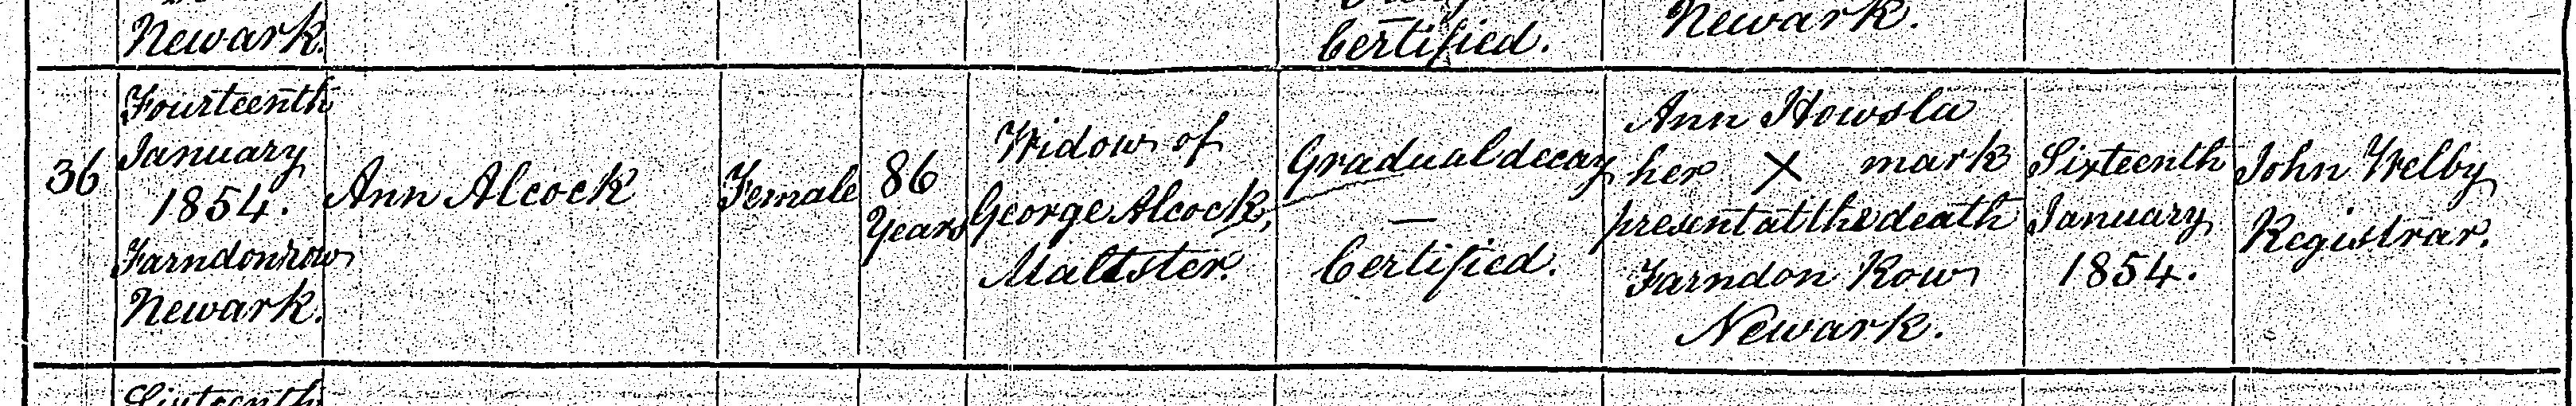 Newark.
Certified.
Newark.
36
Fourteenth
January
1854.
Farndon row
Newark.
Ann Alcock
Female
86
Years
Widow of
George Alcock,
Maltster.
Gradual decay
—
Certified.
Ann Howsla
her X mark
present at the death
Farndon Row
Newark.
Sixteenth
January
1854.
John Welby
Registrar.
Sixteenth